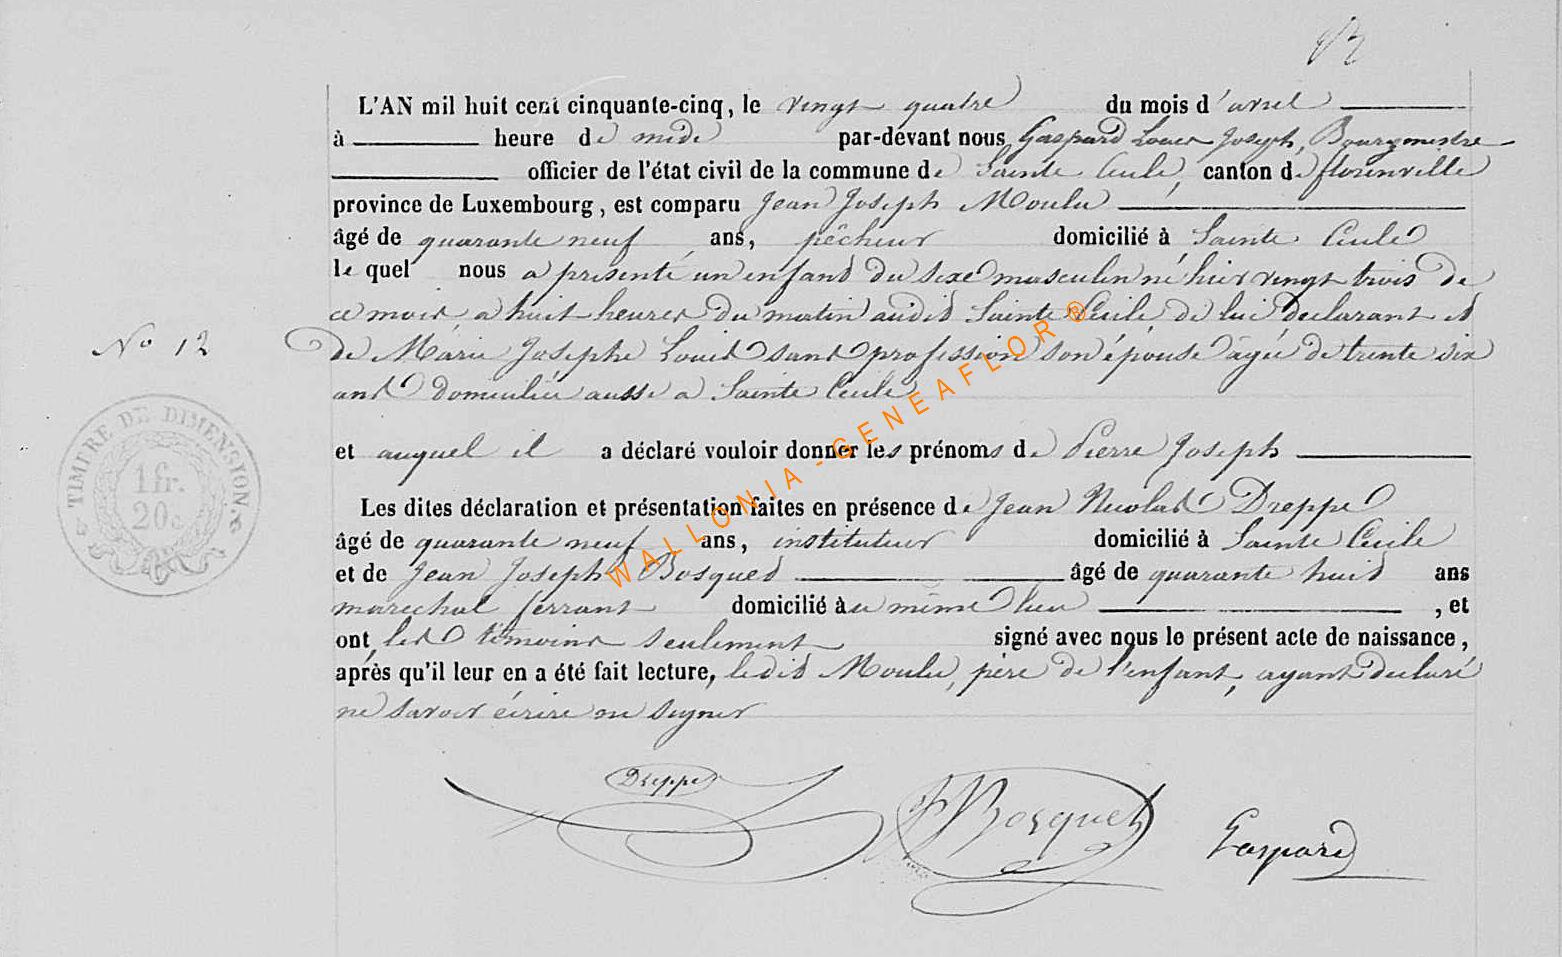 L'AN mil huit cent cinquante-cinq, le vingt quatre du mois d'avril
à heure de midi par-devant nous Gaspard Louis Joseph, Bourgmestre
officier de l'état civil de la commune de Sainte Cecile, canton de florenville
province de Luxembourg, est comparu Jean Joseph Moulu
âgé de quarante neuf ans, pêcheur domicilié à Sainte Cecile
le quel nous a présenté un enfant du sexe masculin né hier vingt trois de
ce mois a huit heures du matin audit Sainte Cecile de lui declarant et
N° 12
de Marie Josephe Louis sans profession son épouse âgée de trente six
ans domiciliée aussi a Sainte Cecile
TIMBRE DE DIMENSION.
1 fr.
20 c
et auquel il a déclaré vouloir donner les prénoms de Pierre Joseph
Les dites déclaration et présentation faites en présence de Jean Nicolas Dreppe
âgé de quarante neuf ans, instituteur domicilié à Sainte Cecile
et de Jean Joseph Bosquet âgé de quarante huit ans
marechal ferrant domicilié au même lieu , et
ont, les témoins seulement signé avec nous le présent acte de naissance,
après qu'il leur en a été fait lecture, ledit Moulu, père de l'enfant, ayant declaré
ne savoir écrire ni signer
Dreppe
JJBosquet
Gaspard
WALLONIA-GENEAFLOR ®